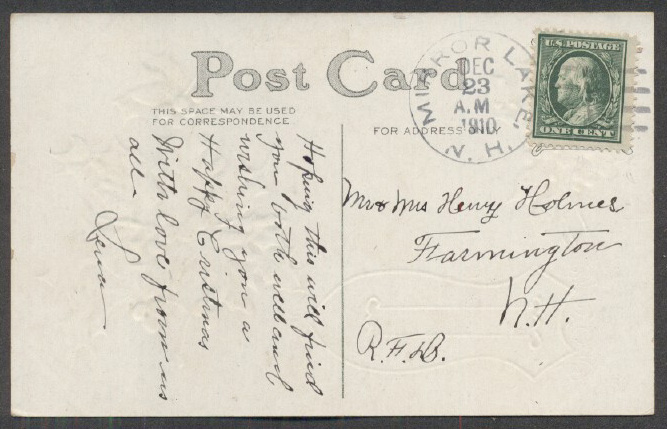 Post Card
THIS SPACE MAY BE USED
FOR CORRESPONDENCE
FOR ADDRESS ONLY
MIRROR LAKE,
DEC
23
A.M
1910
N.H.
U.S. POSTAGE
ONE CENT
Hoping this will find
you both well and
wishing you a
Happy Cristmas
With love from us
all
Lena
Mr & Mrs Henry Holmes
Farmington
N.H.
R.F.D.